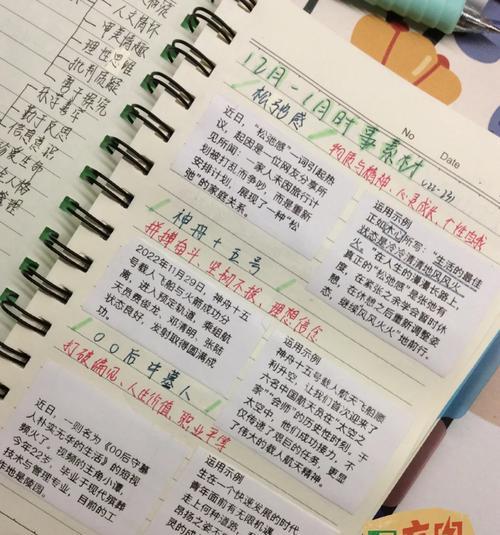 人文情怀
审美情趣
理性思维
批判质疑
勇于探究
乐学善学
勤于反思
信息意识
珍爱生命
管理
12月-1月时事素材
No
Date
松弛感
物质与精神、心灵成长、个性自我
近日，“松弛感”一词引起热
议，起因是一位网友分享所
见所闻：一家人未因旅行计
划被打乱而争吵，而是重新
安排计划，展现了一种“松
弛”的家庭关系。
运用示例
正如木心所写：“生活的最佳
状态是冷冷清清地风风火
火。”在人生的漫漫长路上
真正的“松弛感”是张弛有
度，在紧张之余学会暂时休
息，在休憩之后重新调整姿
态，继续风风火火地前行。
神舟十五号
拼搏奋斗、坚韧不拔、理想信念
2022年11月29日，神舟十五
号载人飞船与火箭成功分
离，进入预定轨道，乘组航
天员费俊龙、邓清明、张陆
状态良好，发射取得圆满成
功。
运用示例
神舟十五号载人航天飞船顺
利升空，让我们首次迎来了
六名中国航天员在“太空之
家”会师”的历史性时刻，于
太空中，他们成功接力，不
仅传递了艰巨的任务，更显
了伟大的载人航天精神。
00后守墓人
打破偏见、人生价值、职业平等
近日，一则名为《00后守墓
人朴实无华的生活》的短视
频火了，视频的主角小谭，
今年22岁，毕业于现代殡葬
技术与管理专业，目前的工
作地是陵园。
运用示例
生在一个快速发展的时代
青年面前有无限机遇
走上何种道路，
昂扬之姿不
灵的成